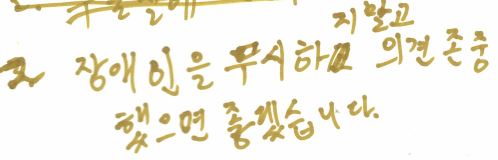 2. 장애인을 무시하지 말고 의견 존중
했으면 좋겠습니다.